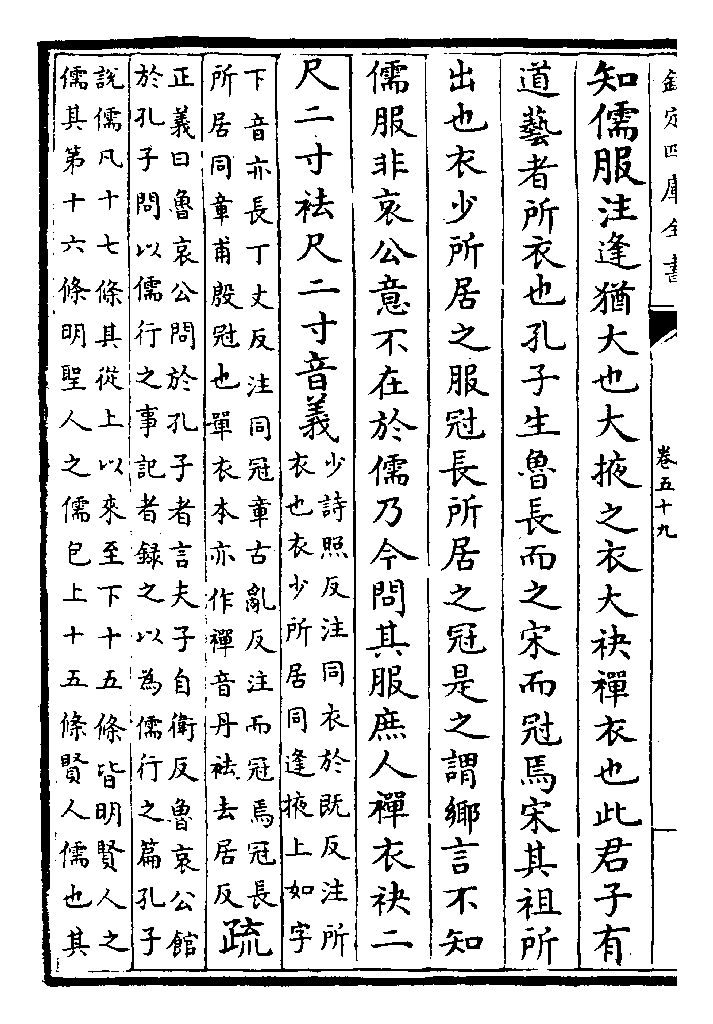 欽定四庫全書
卷五十九
知儒服注逢猶大也大掖之衣大袂禪衣也此君子有
道藝者所衣也孔子生魯長而之宋而冠焉宋其祖所
出也衣少所居之服冠長所居之冠是之謂鄉言不知
儒服非哀公意不在於儒乃今問其服庶人禪衣袂二
尺二寸袪尺二寸音義
少詩照反注同衣於既反注所
衣也衣少所居同逢掖上如字
下音亦長丁丈反注同冠章古亂反注而冠焉冠長
所居同章甫殷冠也單衣本亦作禪音丹袪去居反
疏
正義曰魯哀公問於孔子者言夫子自衛反魯哀公館
於孔子問以儒行之事記者録之以為儒行之篇孔子
說儒凡十七條其從上以來至下十五條皆明賢人之
儒其第十六條明聖人之儒包上十五條賢人儒也其